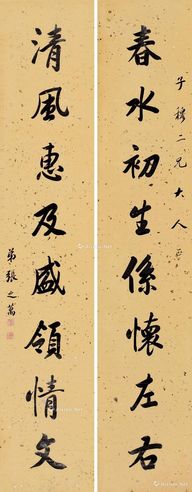 子穆二兄大人
春水初生係懷左右
清風惠及盛領情文
弟張之萬